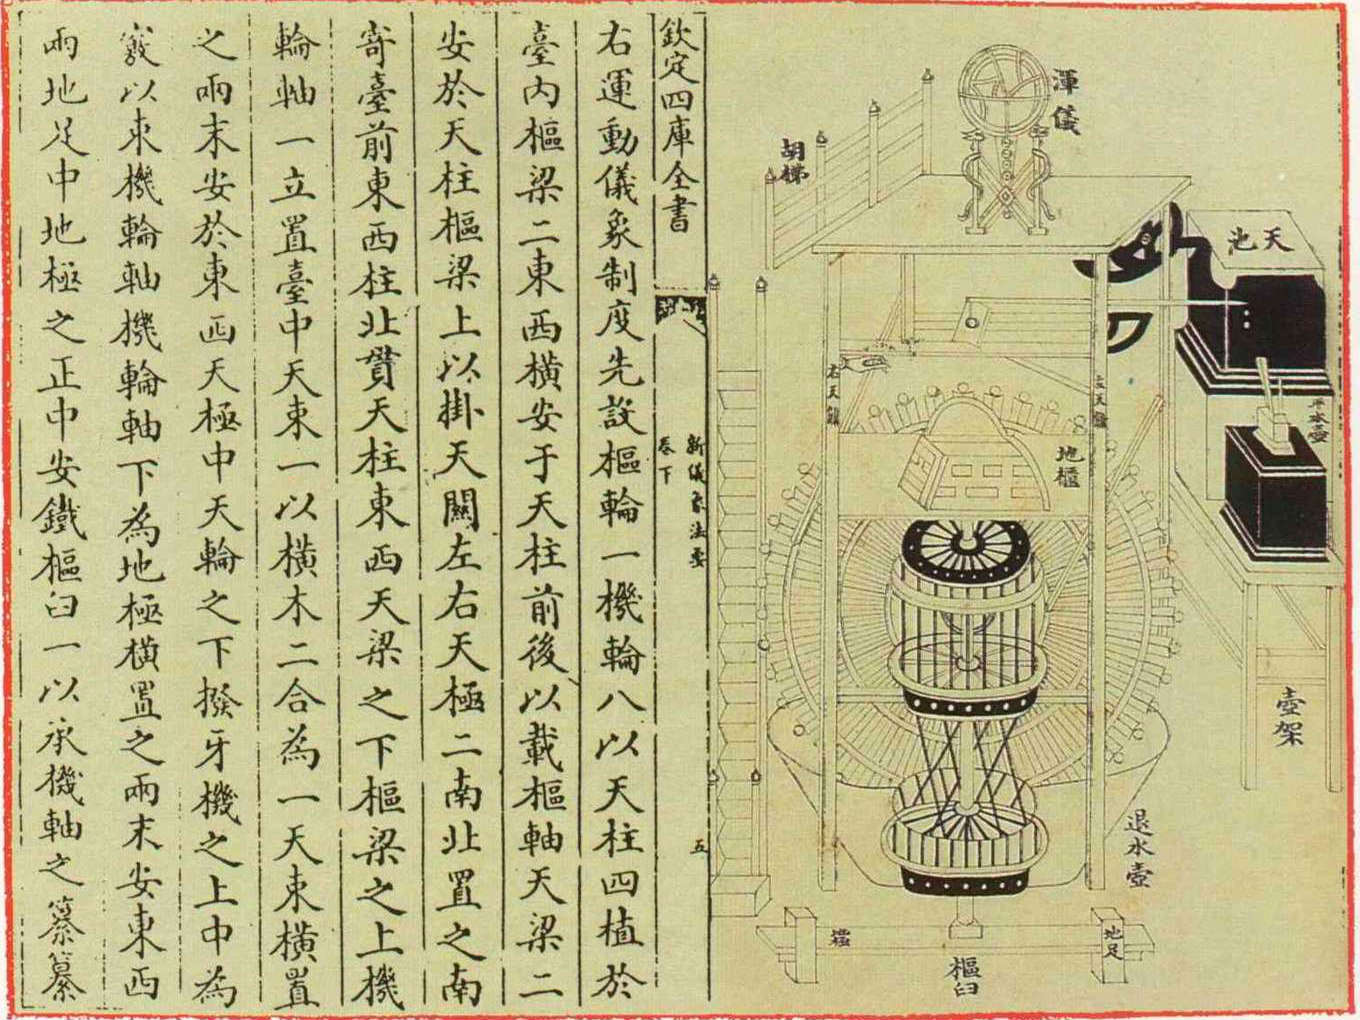 渾儀
胡梯
天池
平水壺
左天鎖
右天鎖
地櫃
壺架
退水壺
地足
樞臼
欽定四庫全書
新儀象法要
卷下
五
右運動儀象制度先設樞輪一機輪八以天柱四植於
臺内樞梁二東西横安于天柱前後以載樞軸天梁二
安於天柱樞梁上以掛天關左右天極二南北置之南
寄臺前東西柱北貫天柱東西天梁之下樞梁之上機
輪軸一立置臺中天束一以横木二合為一天束横置
之兩末安於東西天極中天輪之下撥牙機之上中為
竅以束機輪軸機輪軸下為地極横置之兩末安東西
兩地足中地極之正中安鐵樞臼一以承機軸之纂纂